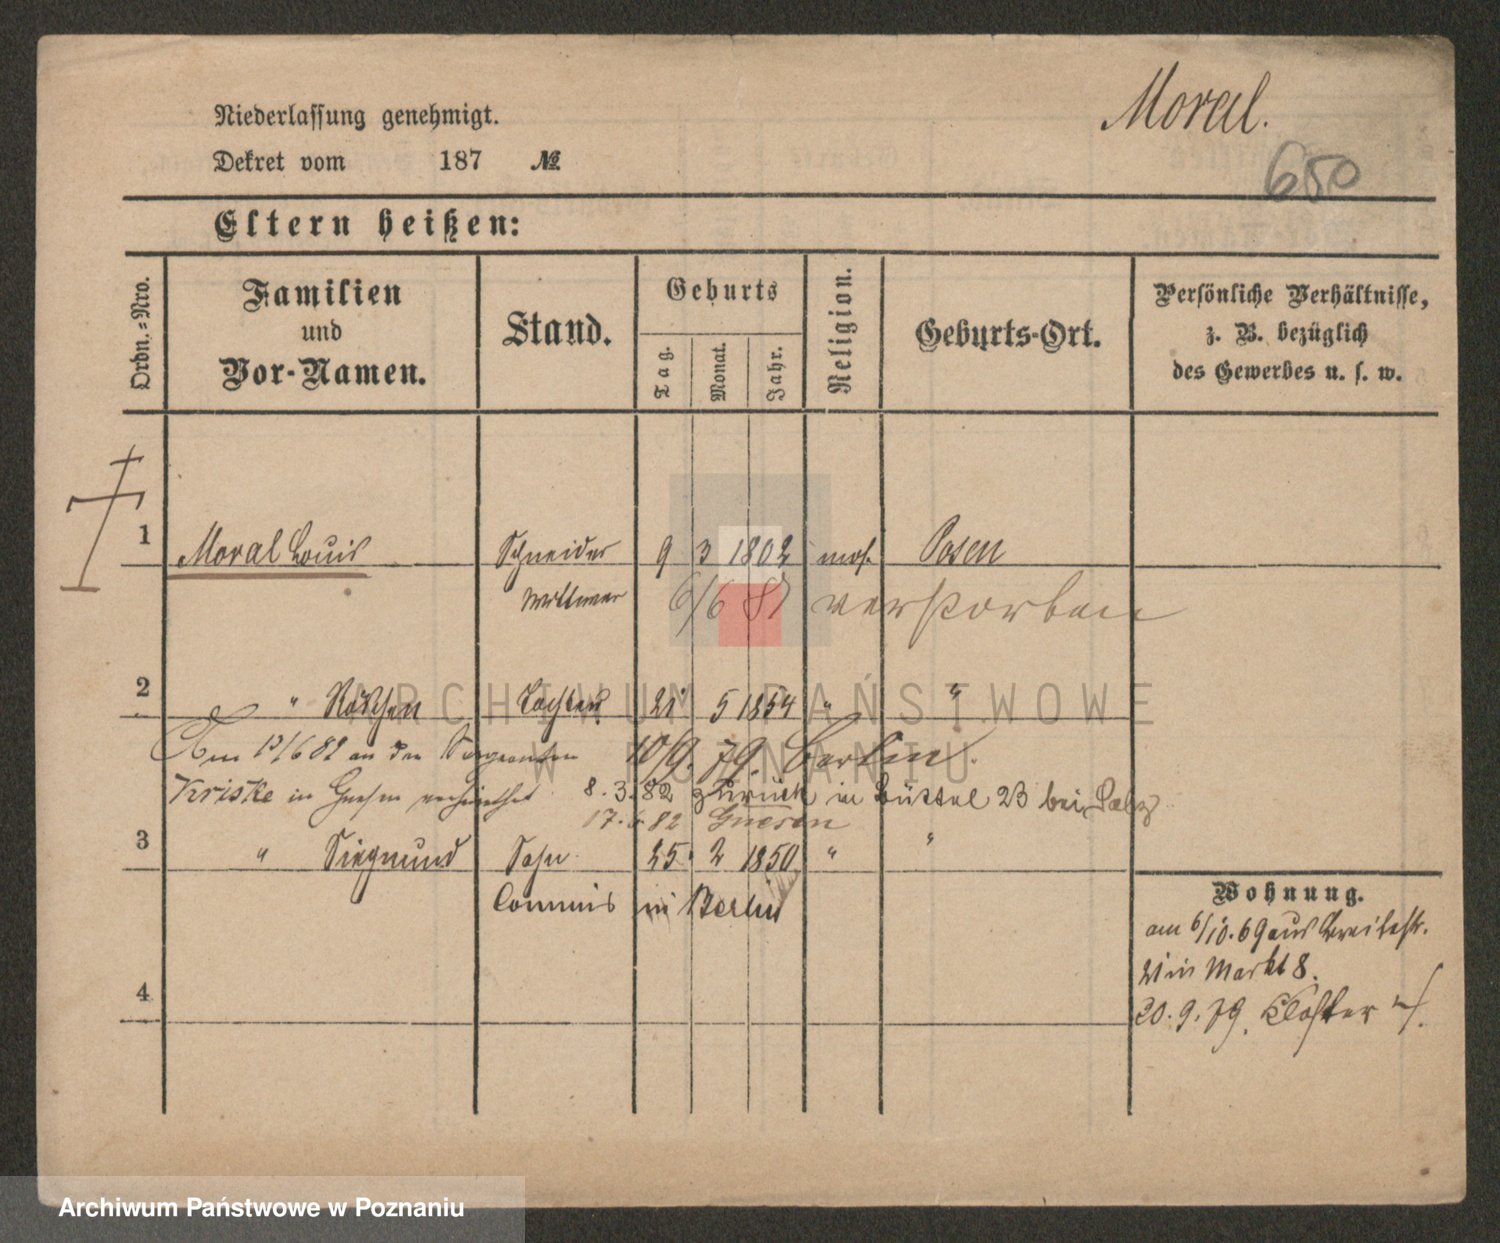 Niederlassung genehmigt.
Moral.
Dekret vom 187 №
650
Eltern heißen:
Ordn.-Nro.
Familien
und
Vor-Namen.
Stand.
Geburts
Tag.
Monat.
Jahr.
Religion.
Geburts-Ort.
Persönliche Verhältnisse,
z. B. bezüglich
des Gewerbes u. s. w.
1 Moral Louis Schneider 9 3 1802 mos. Posen
Wittwer 6/6 81 verstorben
2 " Röschen Tochter 21 5 1854 " "
Am 13/6 82 an den Sergeanten 10/9. 79. Berlin.
Kriske in Gnesen verheirathet 8.3.82 zurück in Büttel 23 bei
17. 82 Gnesen
3 " Siegmund Sohn 25 2 1850 " "
Commis in Berlin
4
Wohnung.
am 6/10. 69 aus Breitestr.
21 in Markt 8.
20.9.79. Kloster
ARCHIWUM PAŃSTWOWE
W POZNANIU
Archiwum Państwowe w Poznaniu